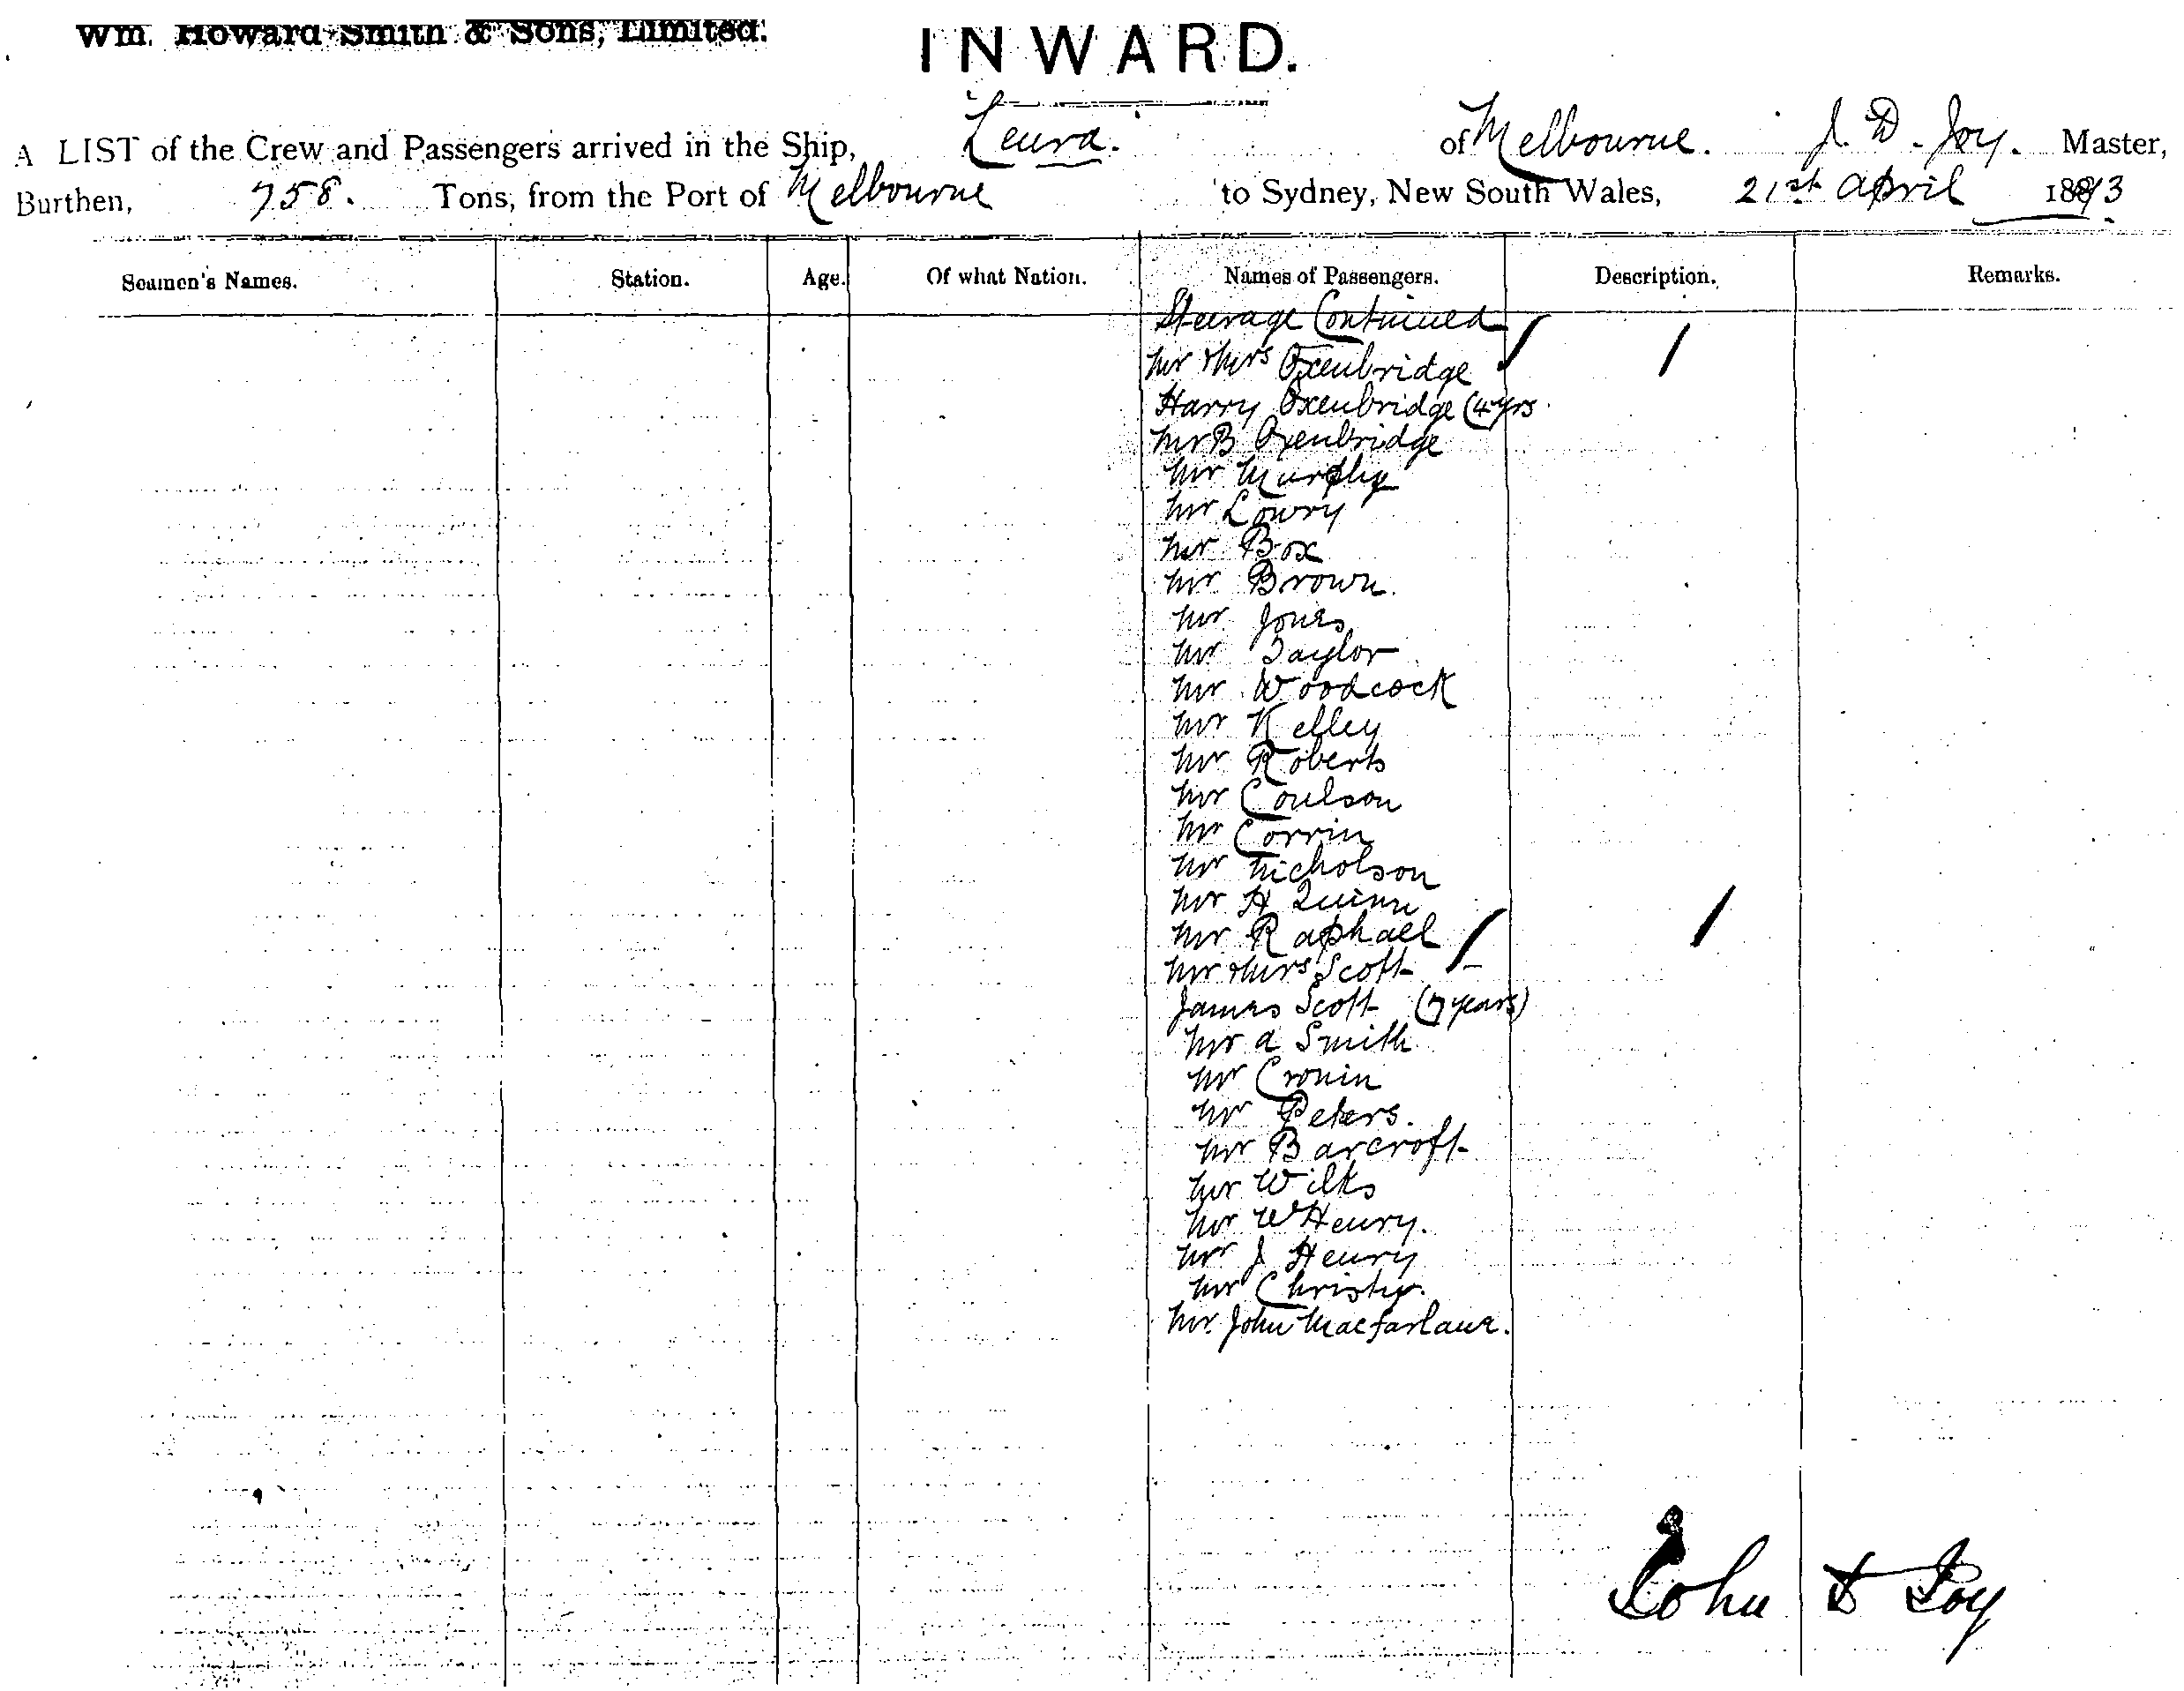 Wm. Howard Smith & Sons, Limited.
INWARD.
A LIST of the Crew and Passengers arrived in the Ship, Leura. of Melbourne. J. D. Joy. Master,
Burthen, 758. Tons, from the Port of Melbourne to Sydney, New South Wales, 21st April 1893
Seamen's Names. Station. Age. Of what Nation. Names of Passengers. Description. Remarks.
Steerage Continued
Mr & Mrs Oxenbridge
Harry Oxenbridge (4 yrs
Mr B Oxenbridge
Mr Murphy
Mr Lowry
Mr Box
Mr Brown.
Mr Jones
Mr Taylor
Mr Woodcock
Mr Kelley
Mr Roberts
Mr Coulson
Mr Corrin
Mr Nicholson
Mr H Quinn
Mr Raphael
Mr & Mrs Scott
James Scott (7 years)
Mr A Smith
Mr Cronin
Mr Peters.
Mr Barcroft
Mr Wilks
Mr W Henry.
Mr J Henry
Mr Christy.
Mr. John Macfarlane.
John D Joy